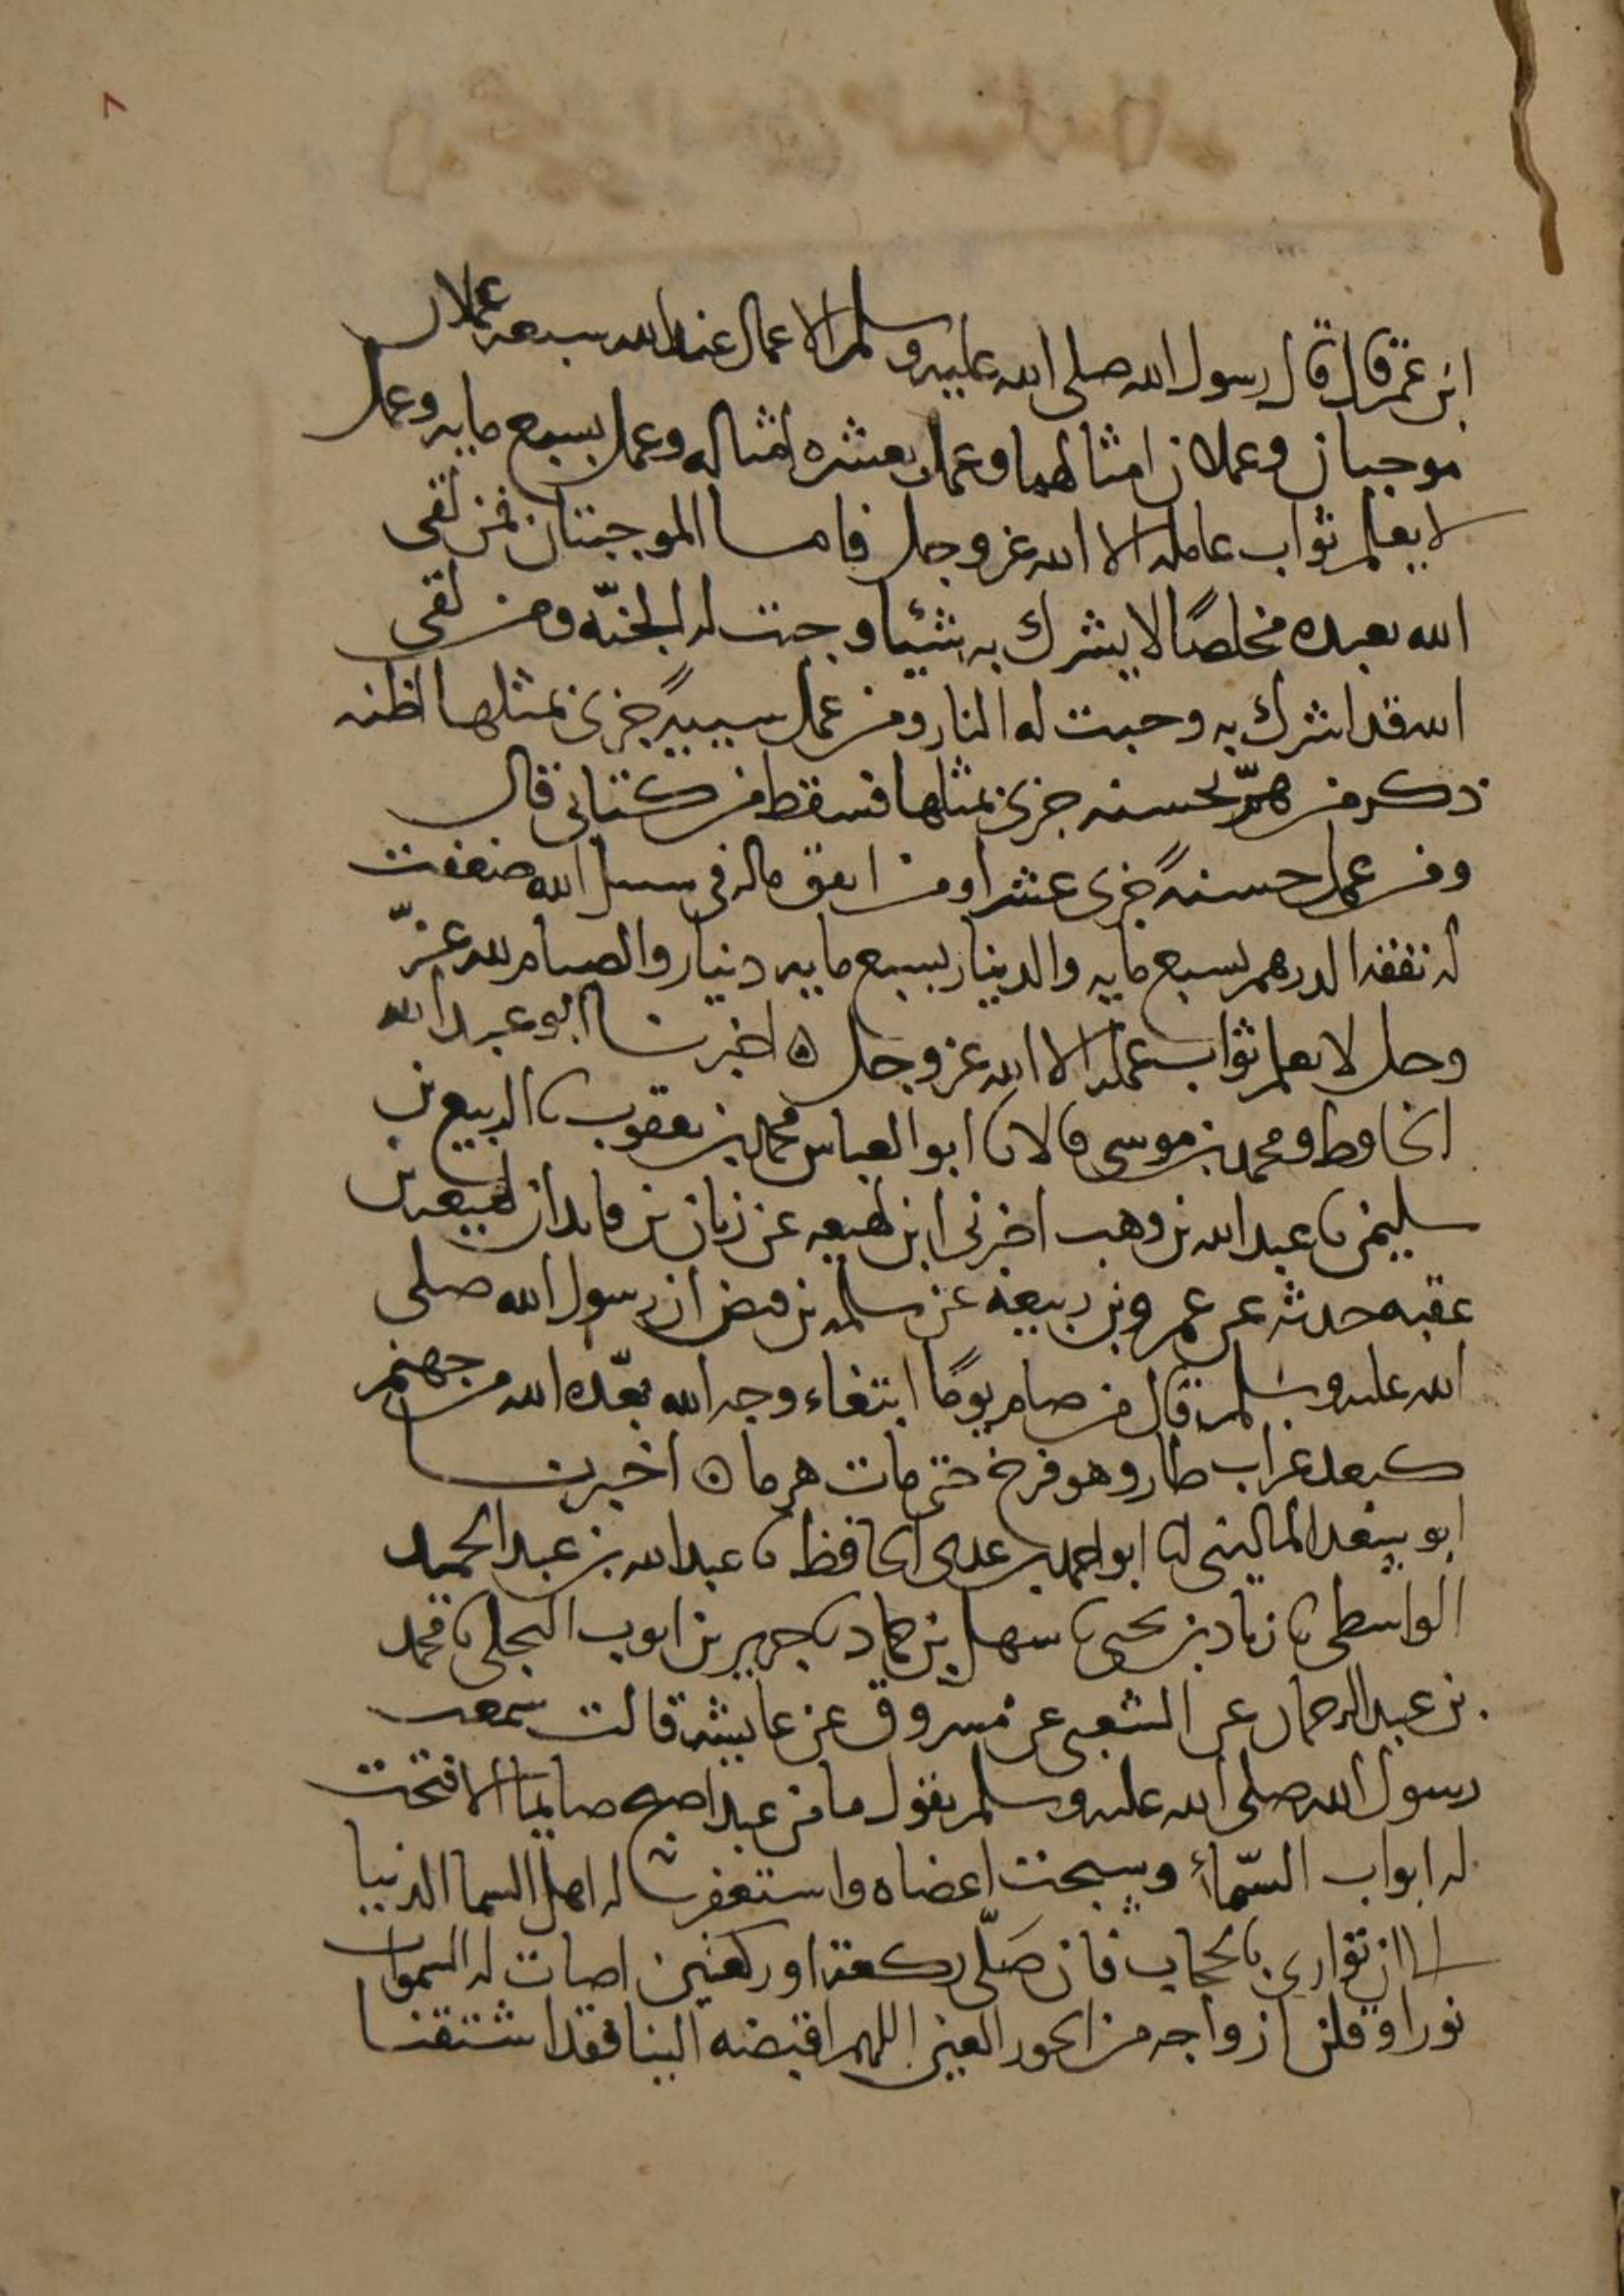 ٨
ابن عمر قال قال رسول الله صلى الله عليه وسلم الاعمال عند الله سبعه عملان
موجبان وعملان امثالهما وعمل بعشره امثاله وعمل بسبع مايه وعمل
لا يعلم ثواب عامله الا الله عز وجل فاما الموجبتان فمن لقى
الله يعبده مخلصًا لا يشرك به شيئا وجبت له الجنّه ومن لقى
الله قد اشرك به وجبت له النار ومن عمل سييهً جزى بمثلها اظنه
ذكر من همّ بحسنه جزى بمثلها فسقط من كتابى قال
ومن عمل حسنهً جزى عشرا ومن انفق ماله فى سبيل الله ضعفت
له نفقه الدرهم بسبع مايه والدينار بسبع مايه دينار والصيام لله عزّ
وجل لا يعلم ثواب عمله الا الله عز وجل ه اخبرنا ابو عبد الله
الحافظ ومحمد بن موسى قالا نا ابو العباس محمد بن يعقوب نا الربيع بن
سليمن نا عبد الله بن وهب اخبرنى ابن لهيعه عن زبان بن فايد ان لهيعه بن
عقبه حدثه عن عمرو بن ربيعة عن سلمه بن قيصر ان رسول الله صلى
الله عليه وسلم قال من صام يومًا ابتغاء وجه الله بعّده الله من جهنم
كبعد غراب طار وهو فرخ حتى مات هرما ه اخبرنا
ابو سعد المالينى انا ابو احمد بن عدى الحافظ نا عبد الله بن عبد الحميد
الواسطى نا زياد بن يحيى نا سهل بن حماد نا جرير بن ايوب البجلى نا محمد
بن عبد الرحمان عن الشعبى عن مسروق عن عايشه قالت سمعت
رسول الله صلى الله عليه وسلم يقول ما من عبد اصبح صايما الا فتحت
له ابواب السّماءِ وسبحت اعضاه واستغفر له اهل السما الدنيا
الا ان توارى بالحجاب فان صَلّى ركعة او ركعتين اضات له السموات
نورا وقلن ازواجه من الحور العين اللهم اقبضه الينا فقد اشتقنا